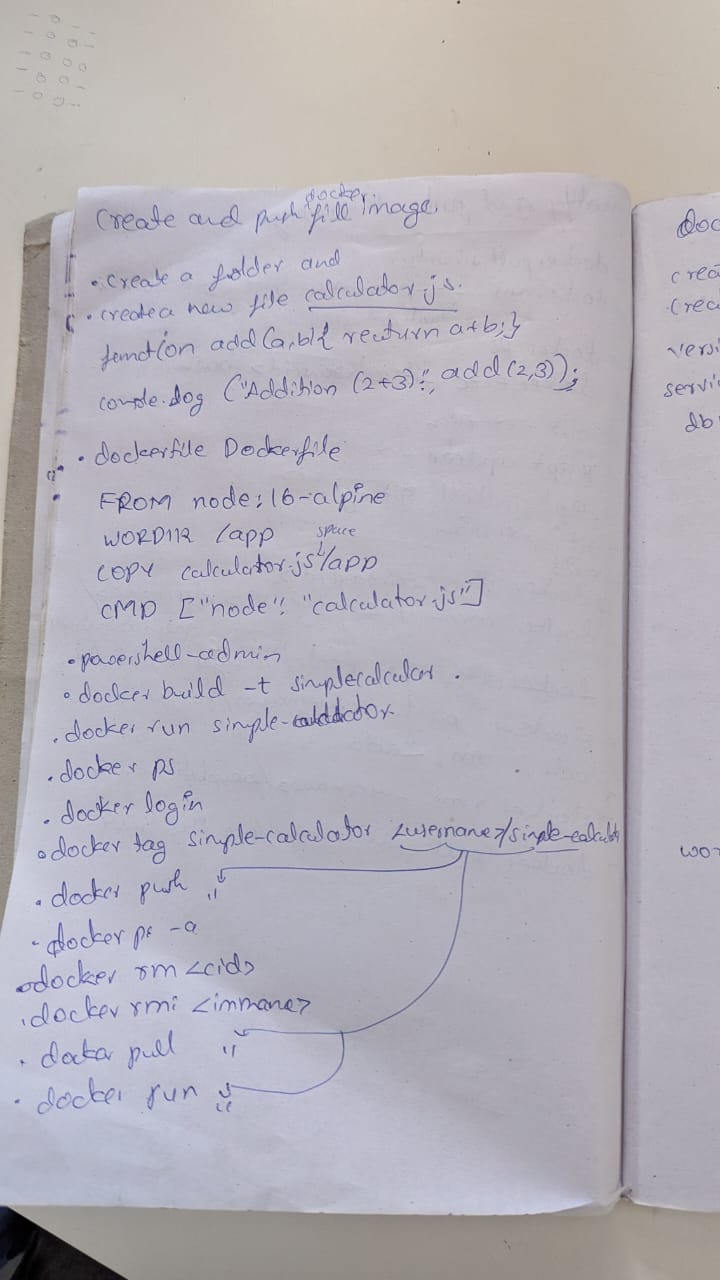 Create and push docker file Image.
• Create a folder and
• create a new file calculator.js.
function add(a,b){ return a+b;}
console.log ("Addition (2+3):", add(2,3));
• dockerfile Dockerfile
FROM node:16-alpine
WORDIR /app
space
COPY calculator.js /app
CMD ["node", "calculator.js"]
• powershell-admin
• docker build -t simplecalculator .
• docker run simple-calculator
• docker ps
• docker login
• docker tag simple-calculator <username>/simple-calculator
• docker push "
• docker ps -a
• docker rm <cid>
• docker rmi <immane>
• docker pull "
• docker run "
Doc
crea
Crea
versi
servi
db
wor